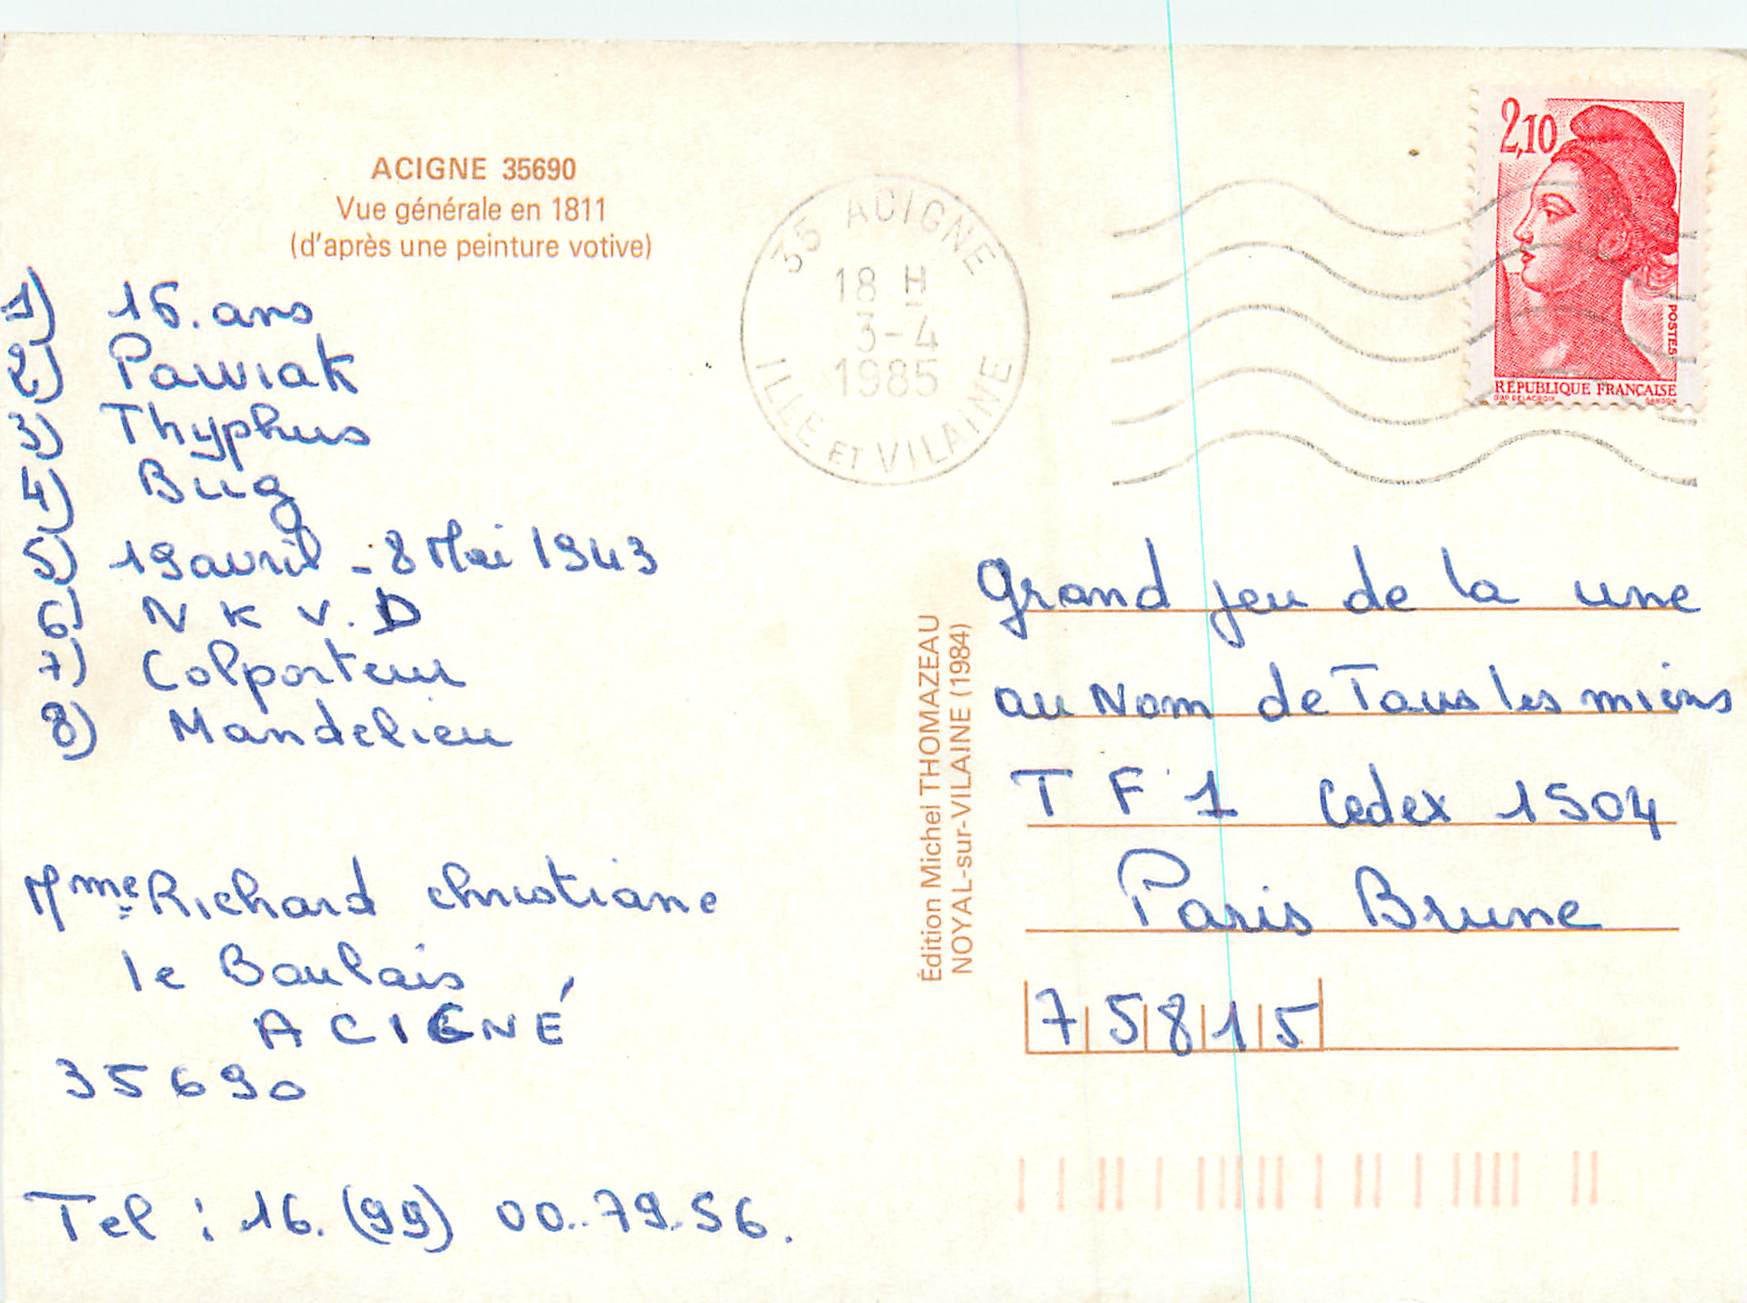 ACIGNE 35690
Vue générale en 1811
(d'après une peinture votive)
1) 16. ans
2) Pawiak
3) Thyphus
4) Bug
5) 19 avril - 8 Mai 1943
6) N K V. D
7) Colporteur
8) Mandelieu
Mme Richard christiane
le Boulais
ACIGNÉ
35690
Tel : 16. (99) 00.79.56.
Édition Michel THOMAZEAU
NOYAL-sur-VILAINE (1984)
35 ACIGNE
18 H
3-4
1985
ILLE ET VILAINE
2,10
POSTES
RÉPUBLIQUE FRANÇAISE
D'AP DELACROIX GANDON
Grand jeu de la une
au Nom de Tous les miens
T F 1 Cedex 1504
Paris Brune
75815